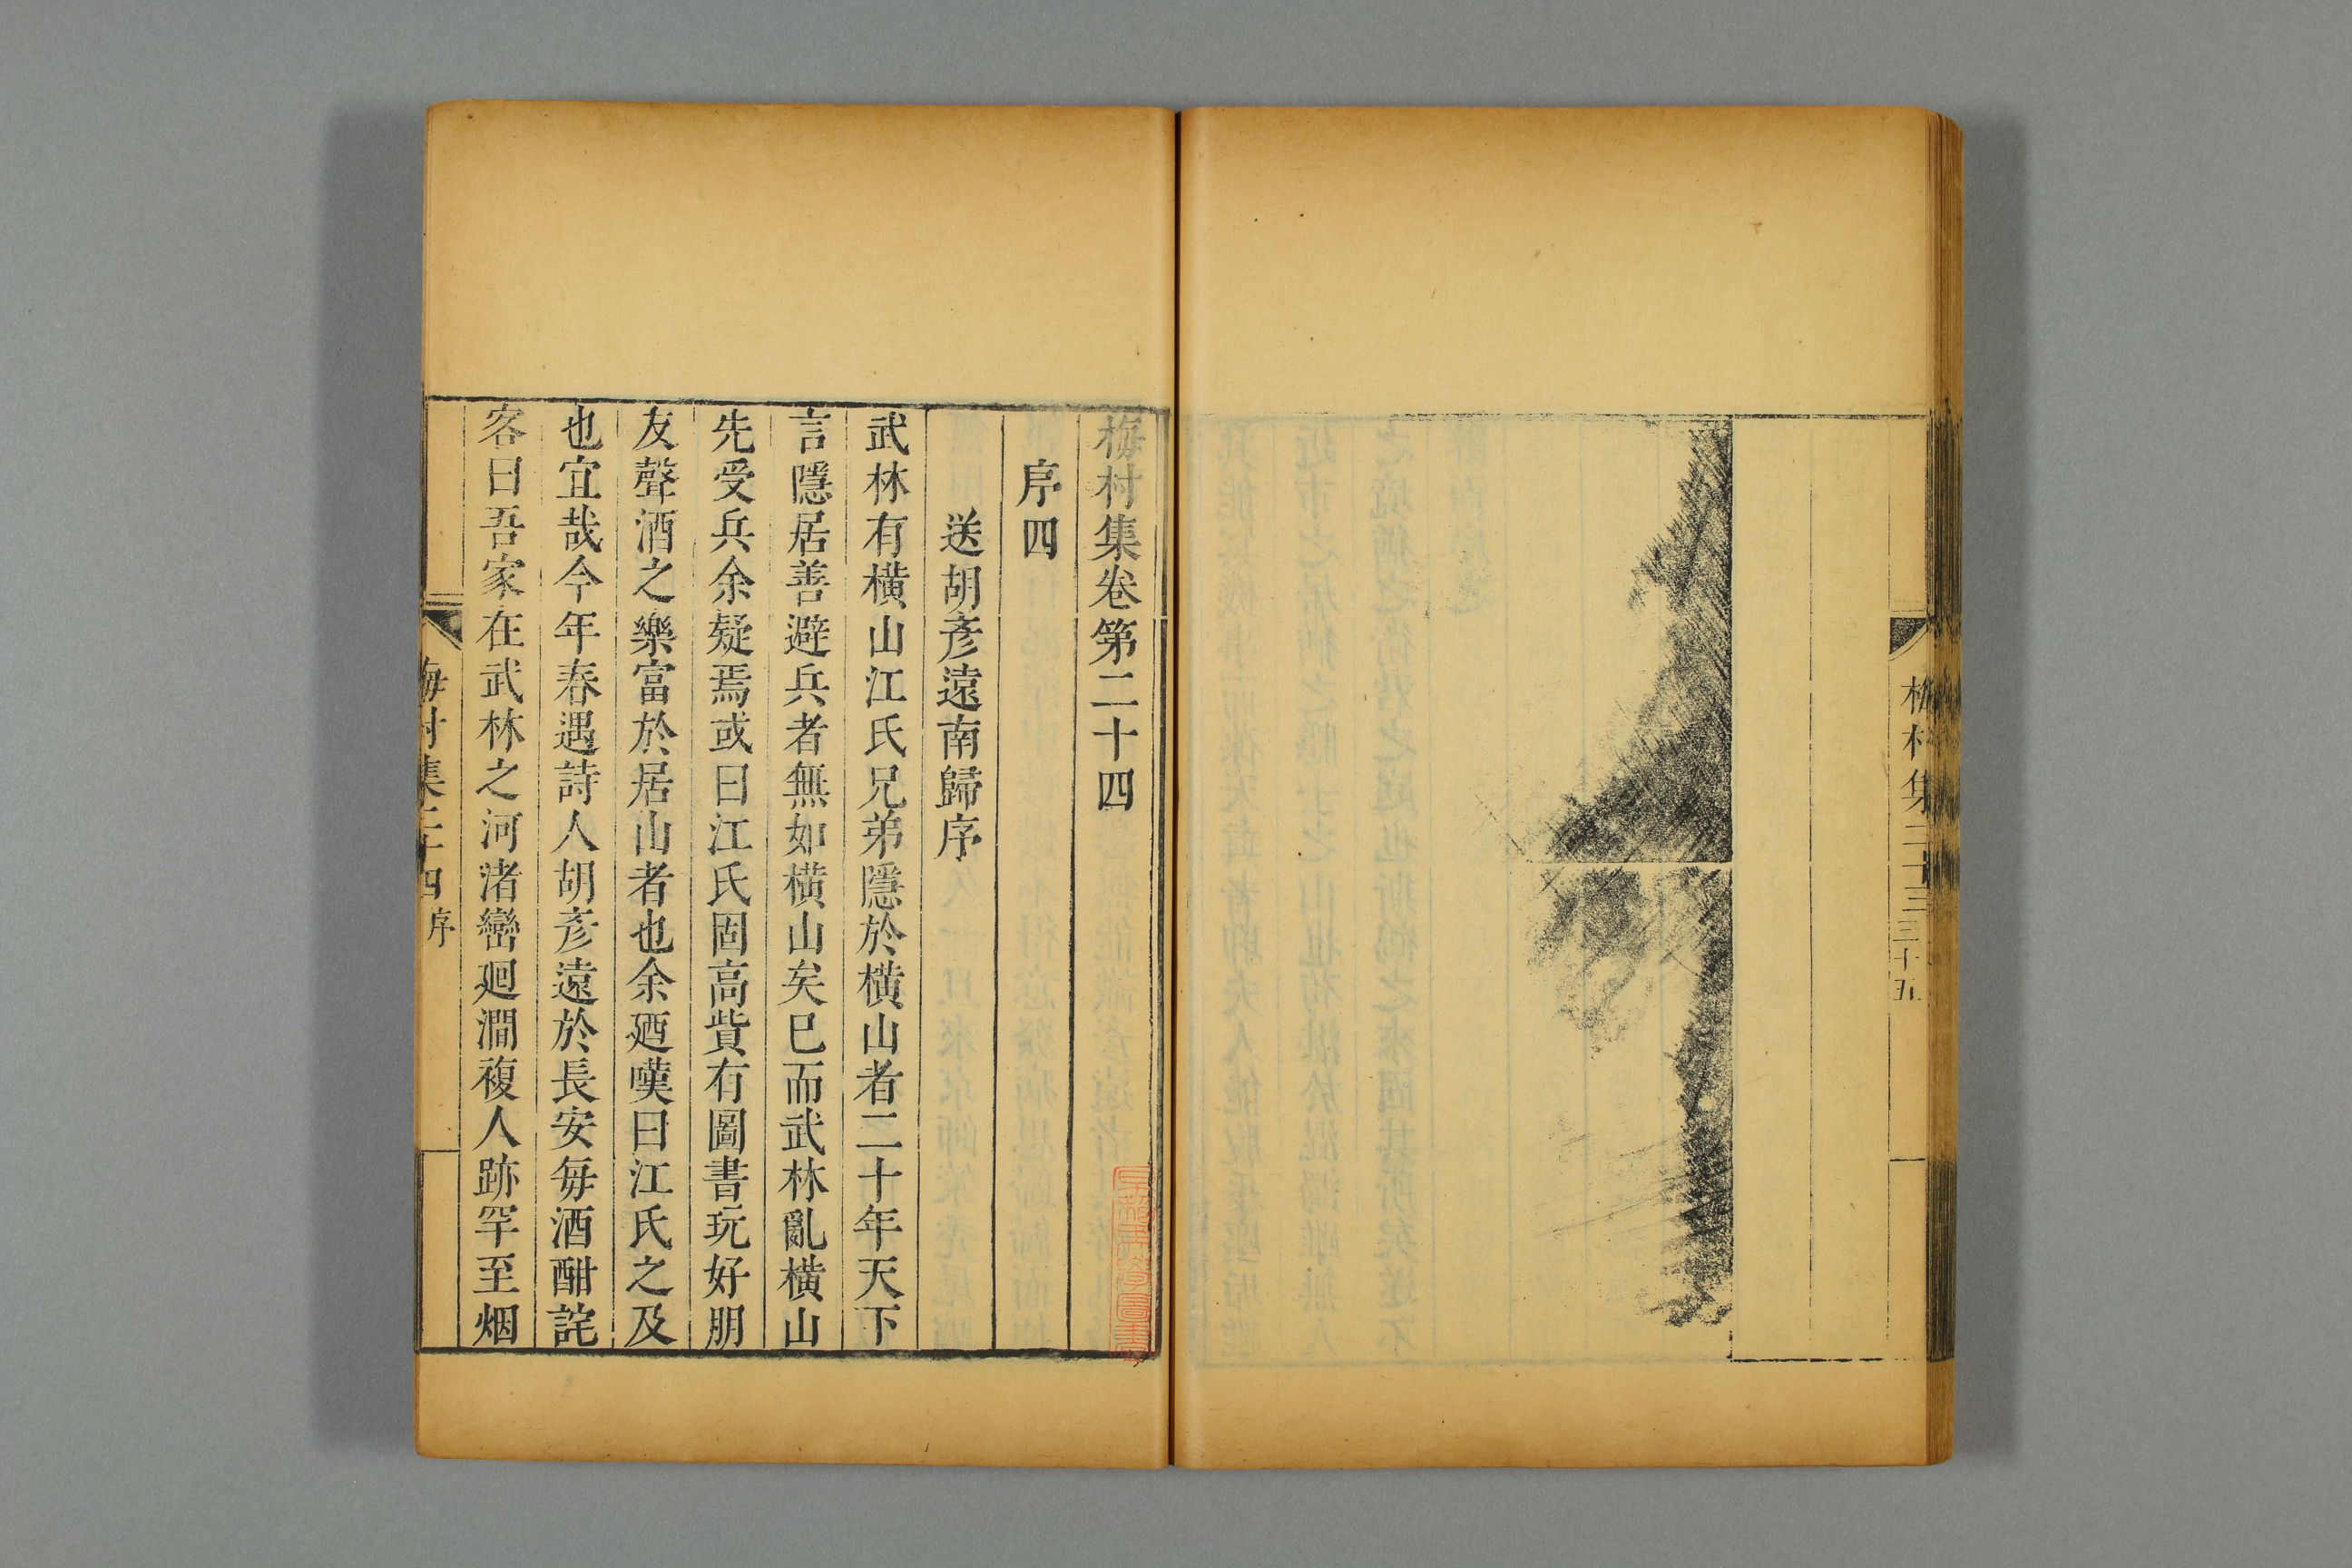 梅村集二十三 三十五
梅村集卷第二十四
序四
送胡彥遠南歸序
武林有橫山江氏兄弟隱於橫山者二十年天下
言隱居善避兵者無如橫山矣巳而武林亂橫山
先受兵余疑焉或曰江氏固高貲有圖書玩好朋
友聲酒之樂富於居山者也余廼嘆曰江氏之及
也宜哉今年春遇詩人胡彥遠於長安每酒酣詫
客曰吾家在武林之河渚巒廻澗複人跡罕至烟
梅村集二十四 序